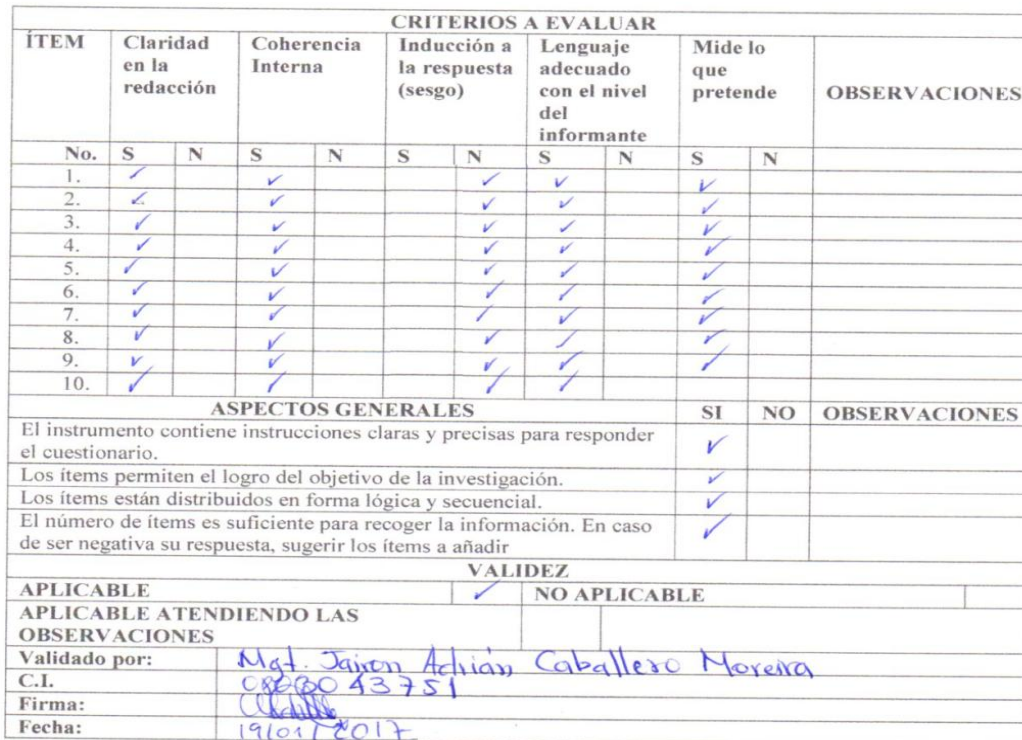 CRITERIOS A EVALUAR
ÍTEM Claridad en la redacción Coherencia Interna Inducción a la respuesta (sesgo) Lenguaje adecuado con el nivel del informante Mide lo que pretende OBSERVACIONES
No. S N S N S N S N S N
1. ✓ ✓ ✓ ✓ ✓
2. ✓ ✓ ✓ ✓ ✓
3. ✓ ✓ ✓ ✓ ✓
4. ✓ ✓ ✓ ✓ ✓
5. ✓ ✓ ✓ ✓ ✓
6. ✓ ✓ ✓ ✓ ✓
7. ✓ ✓ ✓ ✓ ✓
8. ✓ ✓ ✓ ✓ ✓
9. ✓ ✓ ✓ ✓ ✓
10. ✓ ✓ ✓ ✓
ASPECTOS GENERALES SI NO OBSERVACIONES
El instrumento contiene instrucciones claras y precisas para responder
el cuestionario. ✓
Los ítems permiten el logro del objetivo de la investigación. ✓
Los ítems están distribuidos en forma lógica y secuencial. ✓
El número de ítems es suficiente para recoger la información. En caso
de ser negativa su respuesta, sugerir los ítems a añadir ✓
VALIDEZ
APLICABLE ✓ NO APLICABLE
APLICABLE ATENDIENDO LAS
OBSERVACIONES
Validado por: Mgt. Jairon Adrián Caballero Moreira
C.I.
Firma:
Fecha: 19/01/2017